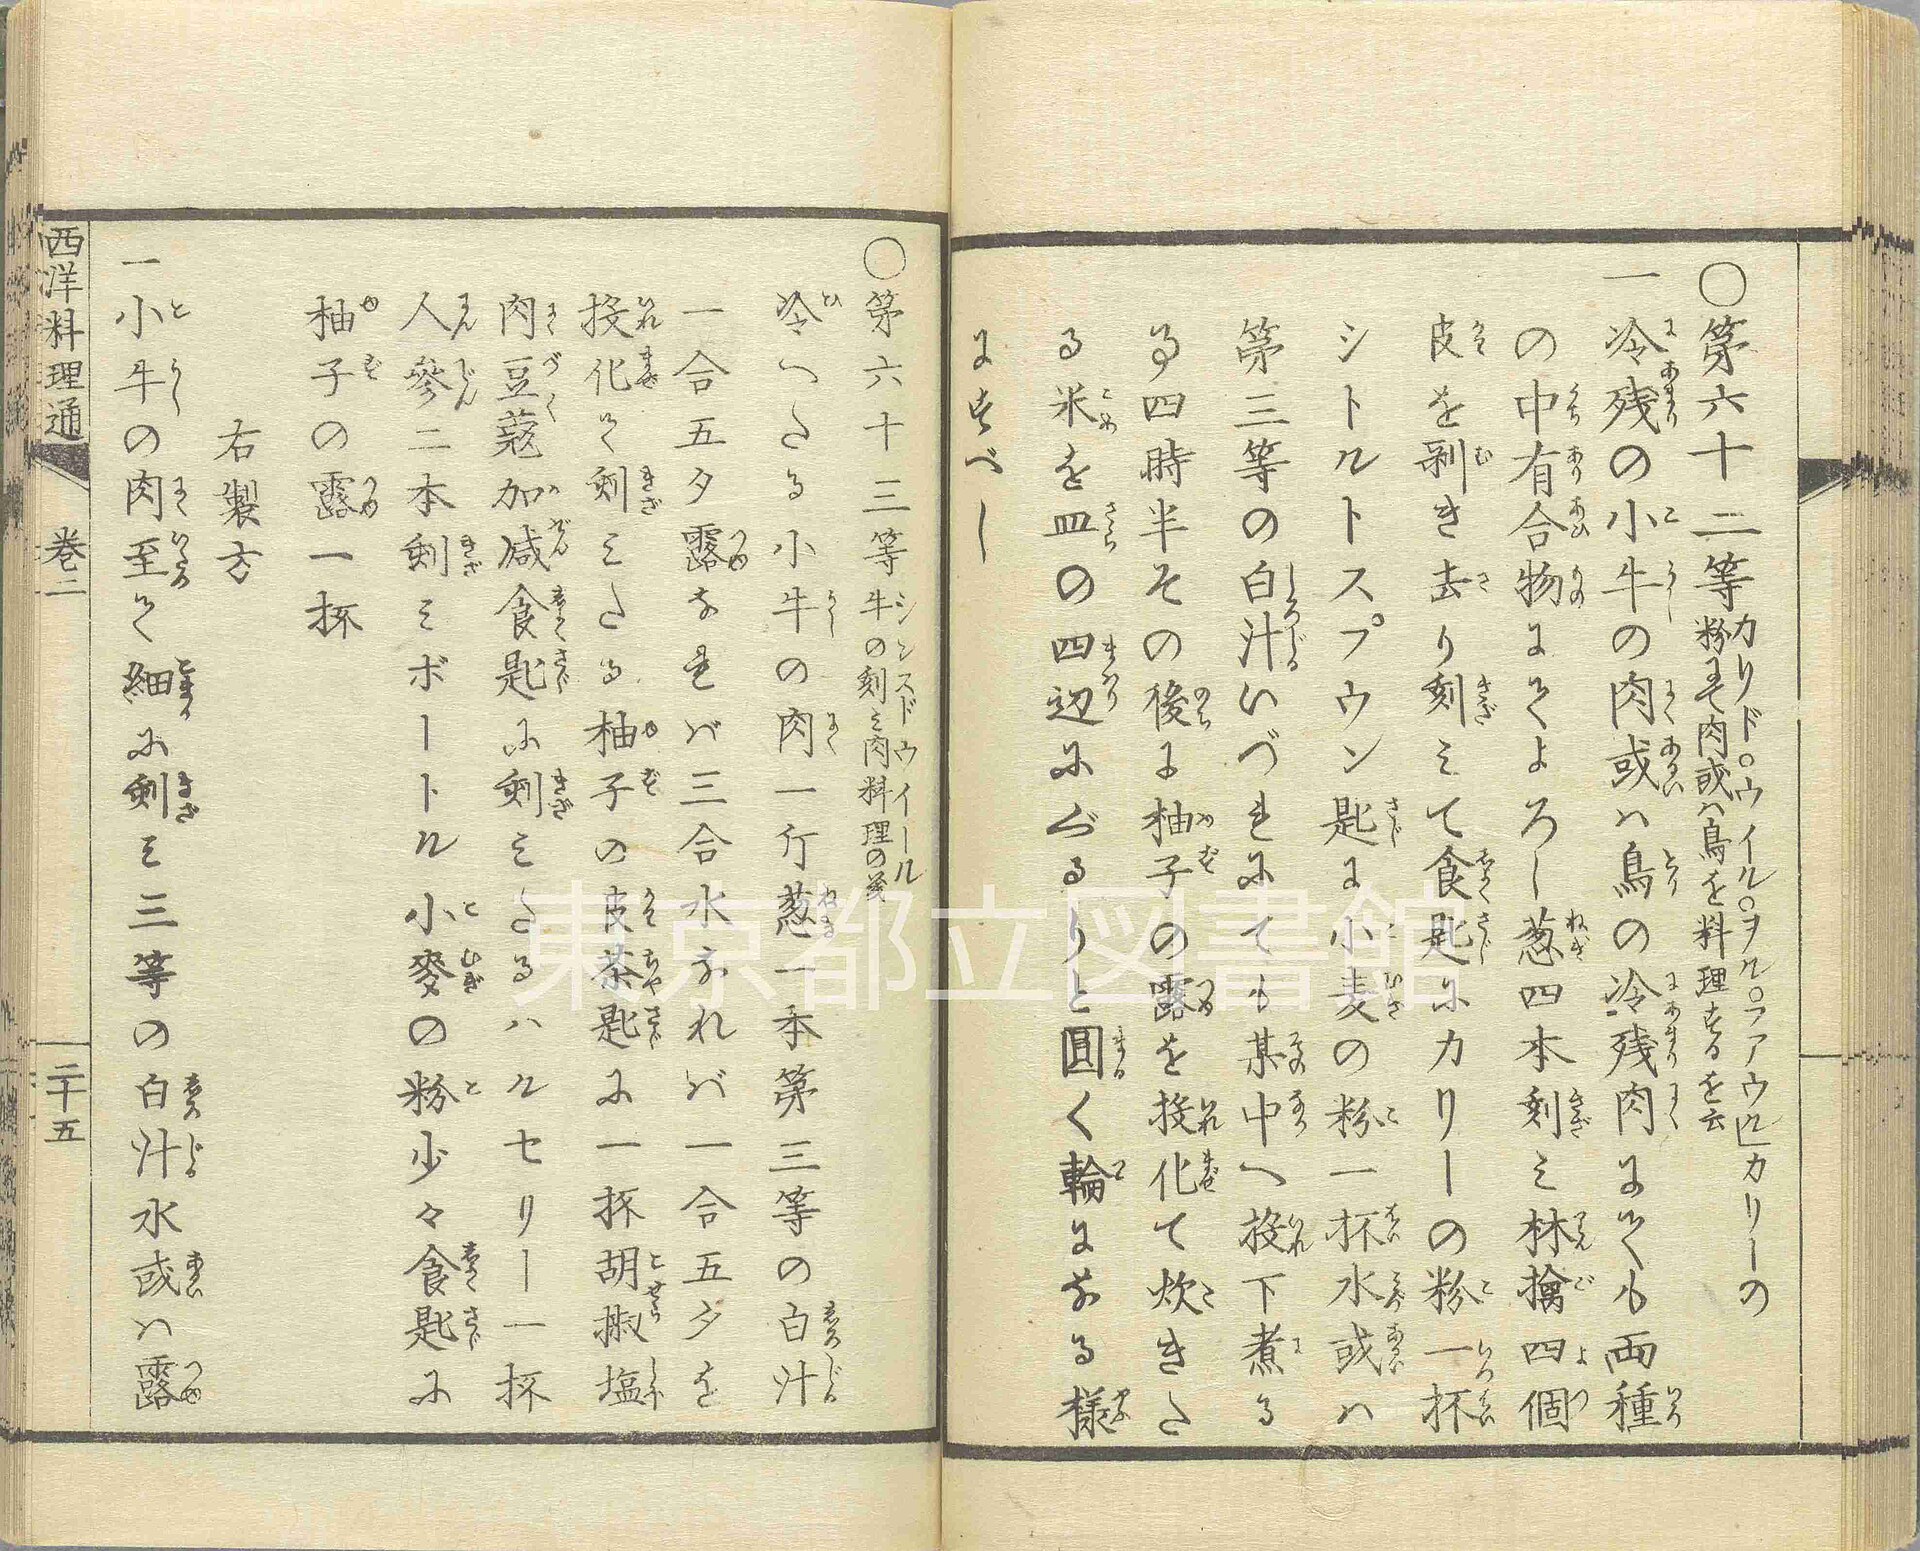 ○第六十二等カリド。ウイル。ヲル。ファウル「カリーの
粉にて肉或ハ鳥を料理するを云
一冷残の小牛の肉或ハ鳥の冷残肉にても両種
の中有合物にてよろし葱四本刻ミ林檎四個
皮を剥き去り刻ミて食匙にカリーの粉一杯
シトルトスプウン匙に小麦の粉一杯水或ハ
第三等の白汁いづれにても其中へ投下煮る
事四時半その後に柚子の露を投化て炊きた
る米を皿の四辺にぐるりと圓く輪になる様
にすべし
○第六十三等シンスドウイール
牛の刻ミ肉料理の義
冷へたる小牛の肉一斤葱一本第三等の白汁
一合五夕露なれバ三合水なれバ一合五夕を
投化て刻ミたる柚子の皮茶匙に一杯胡椒塩
肉豆蔲加减食匙に刻ミたるハルセリー一杯
人參二本刻ミボートル小麥の粉少々食匙に
柚子の露一杯
右製方
一小牛の肉至て細に刻ミ三等の白汁水或ハ露
西洋料理通 巻二 二十五
東京都立図書館